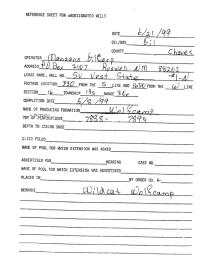 REFERENCE SHEET FOR UNDESIGNATED WELLS
DATE 6/21/99
OIL/GAS Oil
COUNTY Chaves
OPERATOR Manzano Oil Corp
ADDRESS P.O. Box 2107 Roswell, NM 88202
LEASE NAME, WELL NO. SV West State #1-N
FOOTAGE LOCATION 330 FROM THE S LINE AND 1650 FROM THE W LINE
SECTION 16 TOWNSHIP RANGE
COMPLETION DATE 5/8/99
NAME OF PRODUCING FORMATION Wolfcamp
TOP OF PERFORATIONS 7838- 7894
DEPTH TO CASING SHOE
C-123 FILED
NAME OF POOL FOR WHICH EXTENSION WAS ASKED
ADVERTISED FOR HEARING CASE NO.
NAME OF POOL FOR WHICH EXTENSION WAS ADVERTISED
PLACED IN BY ORDER NO. R-
REMARKS Wildcat Wolfcamp